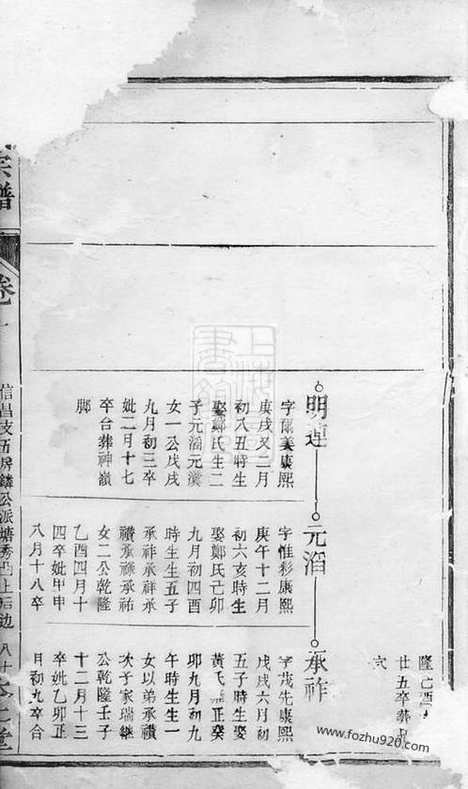 隆己酉
廿五卒葬
明連
字爾美康熙
庚戌又二月
初八丑時生
娶鄭氏生二
子元滔元漢
女一公戊戌
九月初三卒
妣二月十七
卒合葬神嶺
脚
元滔
字惟彩康熙
庚午十二月
初六亥時生
娶鄭氏己卯
九月初四酉
時生生五子
承祚承祿承
禮承承祐
女二公乾隆
乙酉四月十
四卒妣甲申
八月十八卒
承祚
字茂先康熙
戊戌六月初
五子時生娶
黃氏正癸
卯九月初九
午時生生一
女以弟承禮
次子家瑞繼
公乾隆壬子
十二月十三
卒妣乙卯正
月初九卒合
宗譜
卷
信昌技五房鏻公派塘秀上后边
八十
www.fozhu920.com